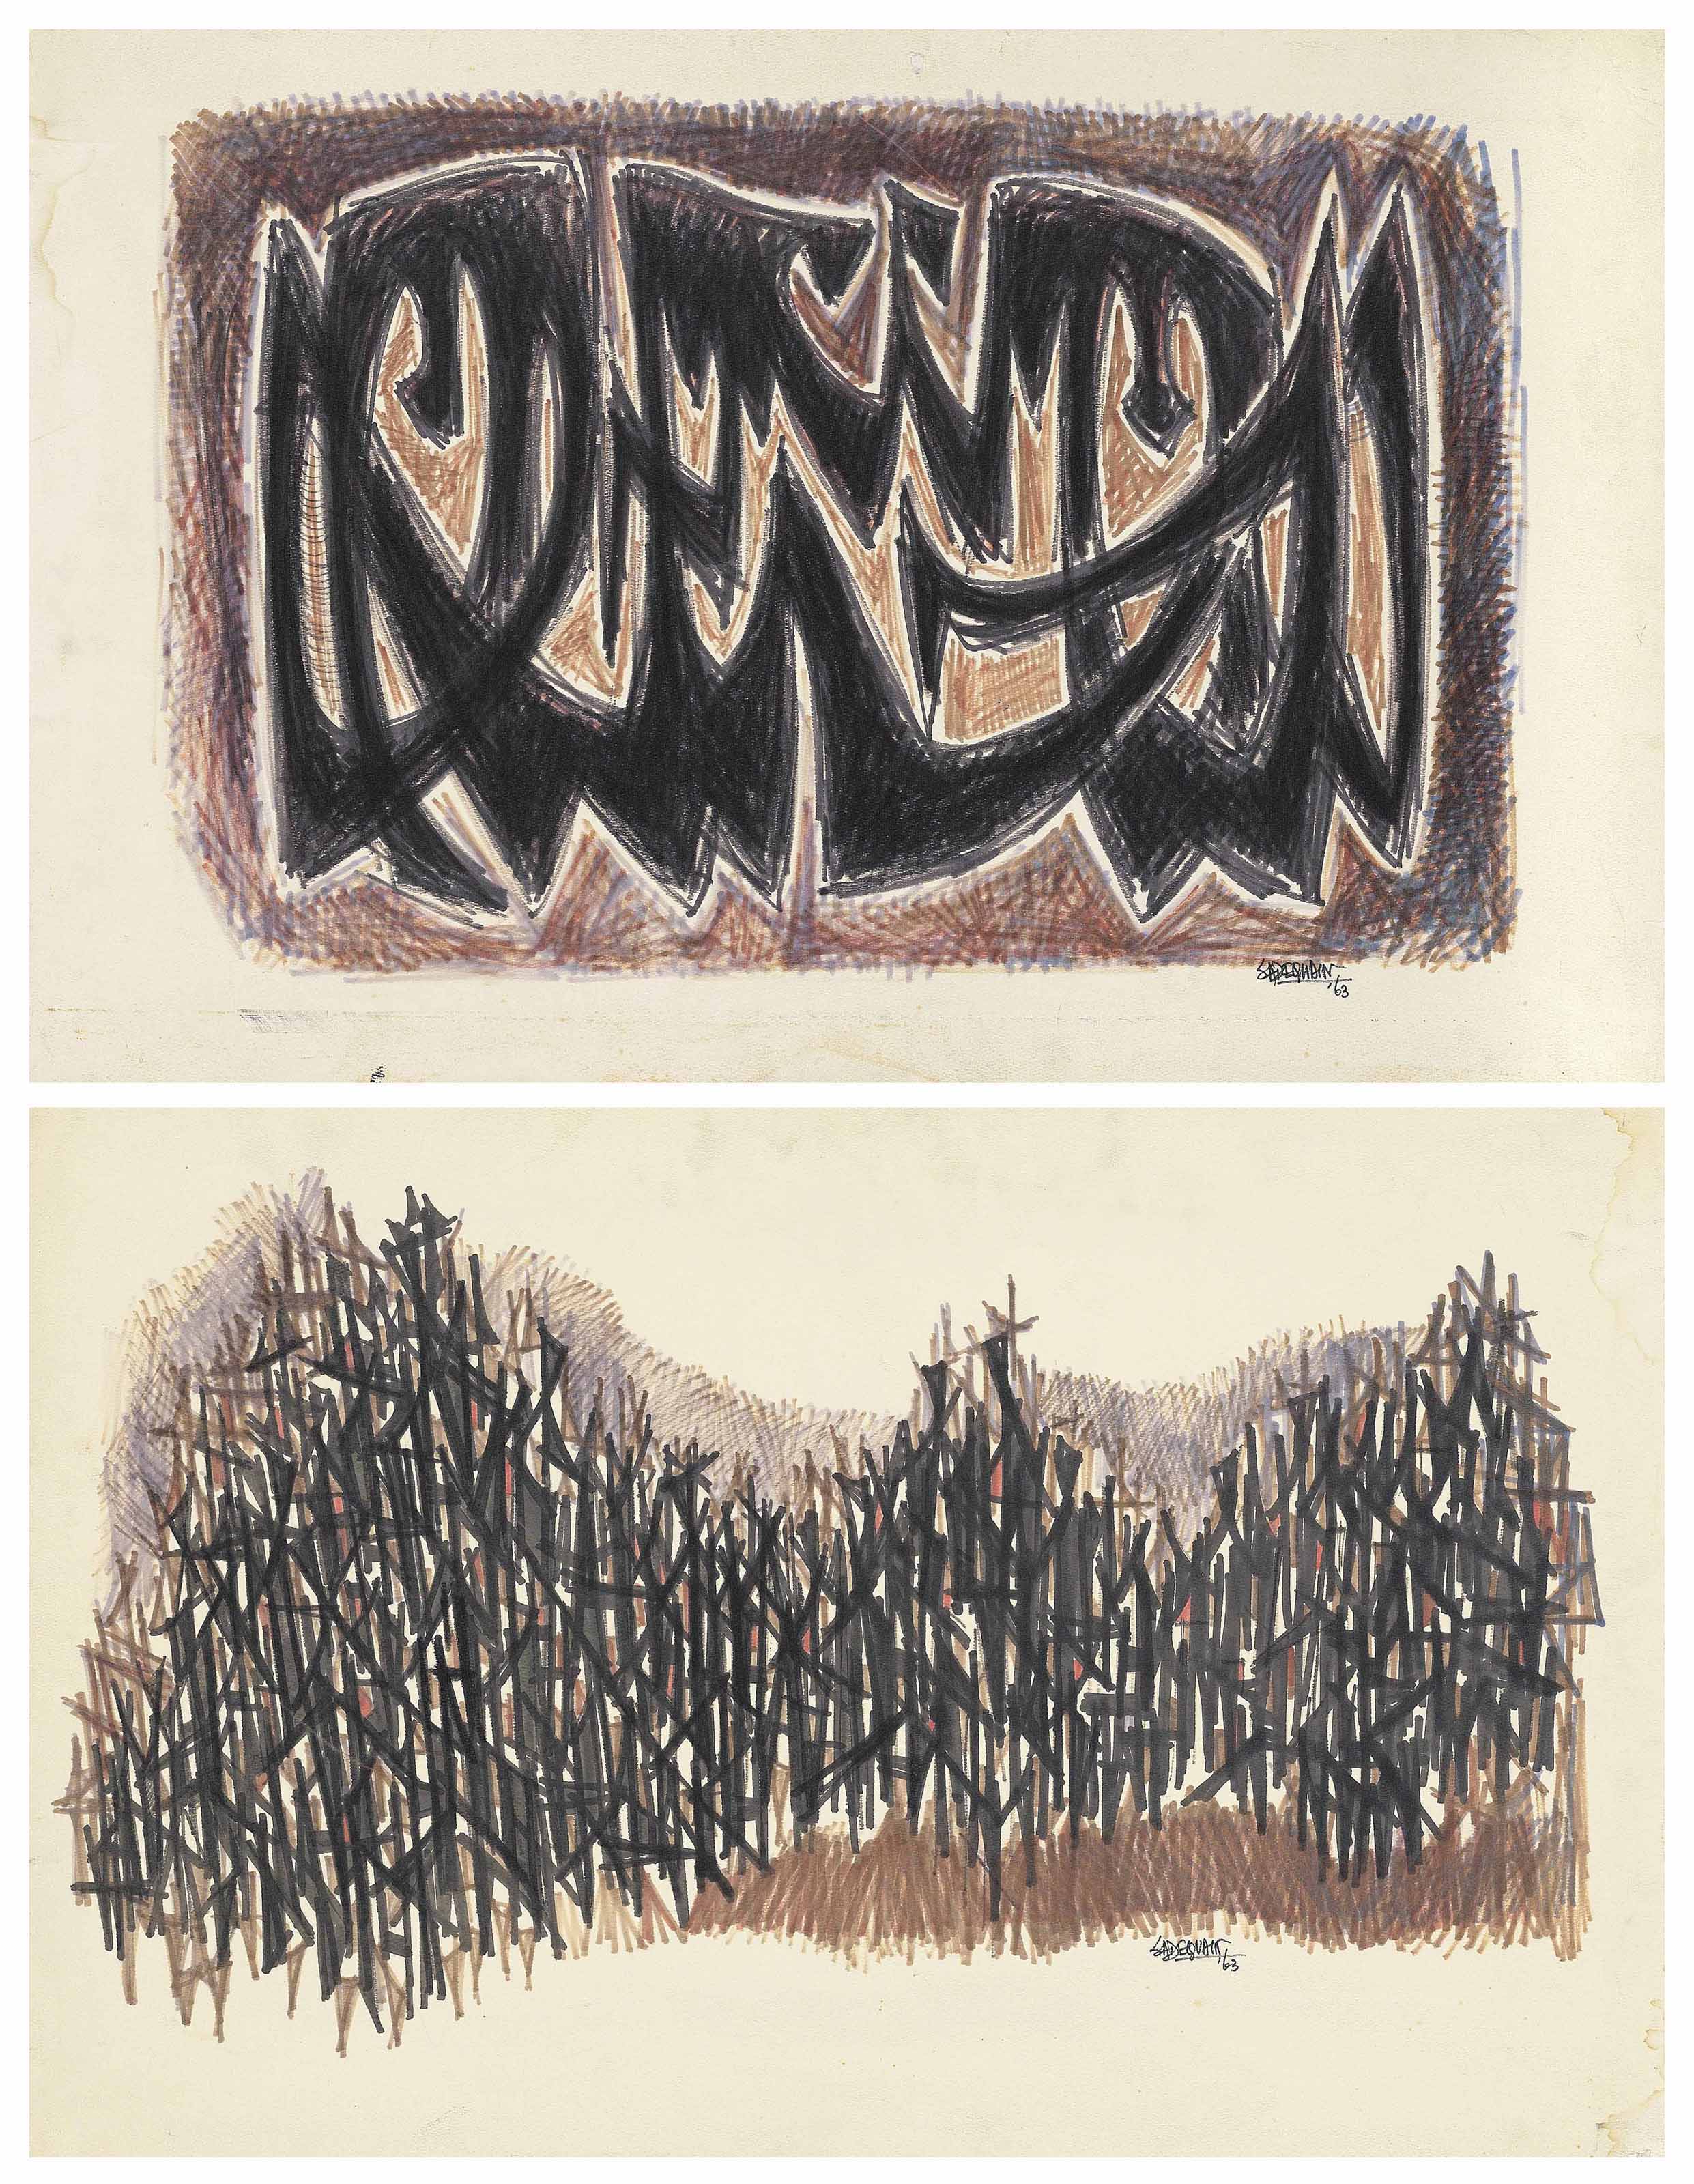 SADEQUAIN,
/63
SADEQUAIN,
/63